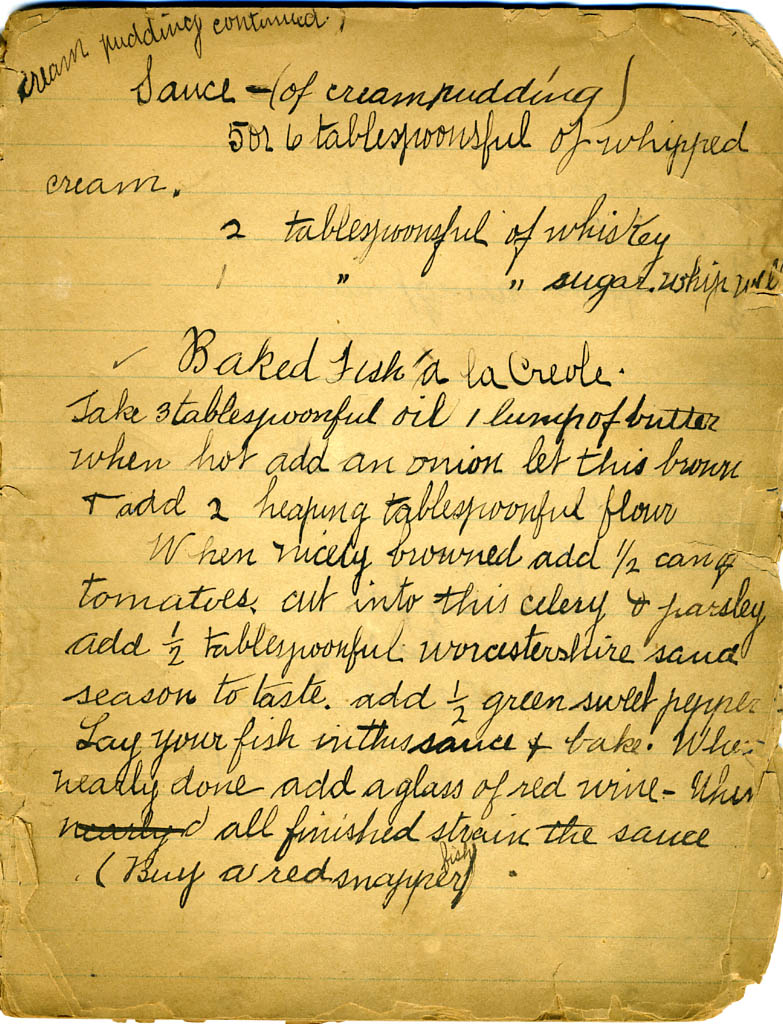 cream pudding continued.
Sauce - (of cream pudding)
5 or 6 tablespoonsful of whipped
cream.
2 tablespoonsful of whiskey
1 " " sugar. whip well
Baked Fish a la Creole.
Take 3 tablespoonful oil 1 lump of butter
when hot add an onion let this brown
& add 2 heaping tablespoonful flour
When nicely browned add 1/2 can of
tomatoes. cut into this celery & parsley
add 1/2 tablespoonful worcestershire sauce
season to taste. add 1/2 green sweet pepper
Lay your fish in this sauce & bake. When
nearly done add a glass of red wine - When
nearly all finished strain the sauce
(Buy a red snapper fish)